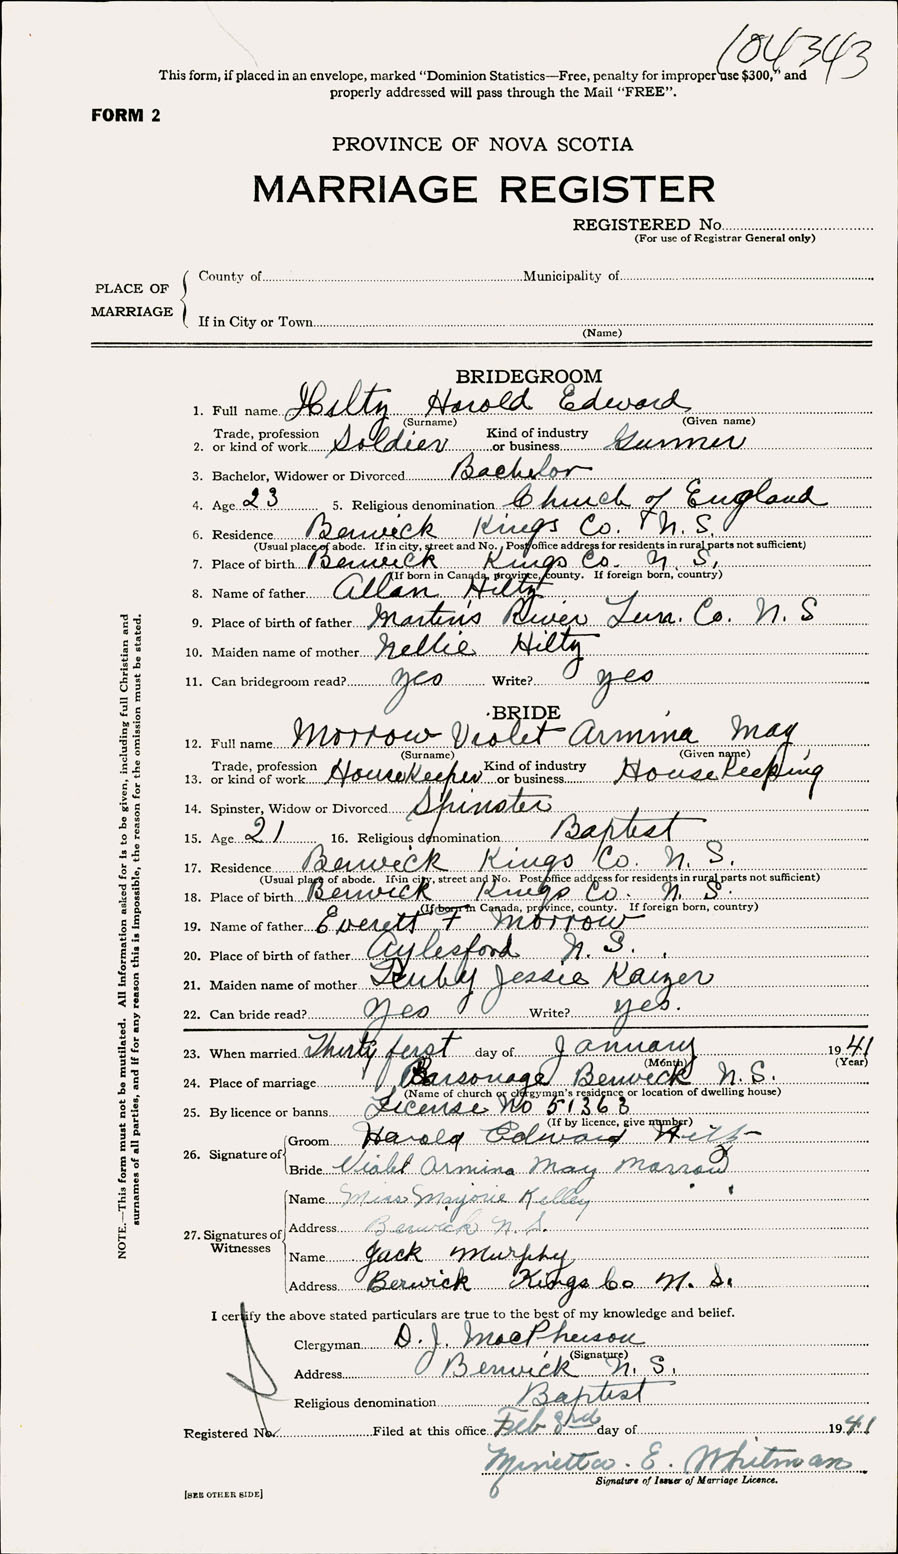 104343
This form, if placed in an envelope, marked "Dominion Statistics—Free, penalty for improper use $300," and
properly addressed will pass through the Mail "FREE".
FORM 2
PROVINCE OF NOVA SCOTIA
MARRIAGE REGISTER
REGISTERED No.
(For use of Registrar General only)
PLACE OF MARRIAGE
County of Municipality of
If in City or Town
(Name)
BRIDEGROOM
1. Full name Hiltz Harold Edward
(Surname) (Given name)
2. Trade, profession or kind of work Soldier Kind of industry or business Gunner
3. Bachelor, Widower or Divorced Bachelor
4. Age 23 5. Religious denomination Church of England
6. Residence Berwick Kings Co. N.S.
(Usual place of abode. If in city, street and No. Post office address for residents in rural parts not sufficient)
7. Place of birth Berwick Kings Co. N.S.
(If born in Canada, province, county. If foreign born, country)
8. Name of father Allan Hiltz
9. Place of birth of father Martins River Lun. Co. N.S
10. Maiden name of mother Nellie Hiltz
11. Can bridegroom read? yes Write? yes
BRIDE
12. Full name Morrow Violet Armina May
(Surname) (Given name)
13. Trade, profession or kind of work HouseKeeper Kind of industry or business HouseKeeping
14. Spinster, Widow or Divorced Spinster
15. Age 21 16. Religious denomination Baptist
17. Residence Berwick Kings Co. N.S.
(Usual place of abode. If in city, street and No. Post office address for residents in rural parts not sufficient)
18. Place of birth Berwick Kings Co. N.S.
(If born in Canada, province, county. If foreign born, country)
19. Name of father Everett F Morrow
20. Place of birth of father Aylesford N.S.
21. Maiden name of mother Ruby Jessie Kaizer
22. Can bride read? Yes Write? yes.
23. When married Thirty first day of January 1941
(Month) (Year)
24. Place of marriage Parsonage Berwick N.S.
(Name of church or clergyman's residence or location of dwelling house)
25. By licence or banns License No 51363
(If by licence, give number)
26. Signature of Groom Harold Edward Hiltz
Bride Violet Armina May Morrow
27. Signatures of Witnesses
Name Miss Marjorie Kelley
Address Berwick N.S.
Name Jack Murphy
Address Berwick Kings Co N.S.
I certify the above stated particulars are true to the best of my knowledge and belief.
Clergyman D. J. MacPherson
(Signature)
Address Berwick N.S.
Religious denomination Baptist
Registered No. Filed at this office Feb 3rd day of 1941
Minetta. E. Whitman
Signature of Issuer of Marriage Licence.
[SEE OTHER SIDE]
NOTE.—This form must not be mutilated. All Information asked for is to be given, including full Christian and
surnames of all parties, and if for any reason this is impossible, the reason for the omission must be stated.